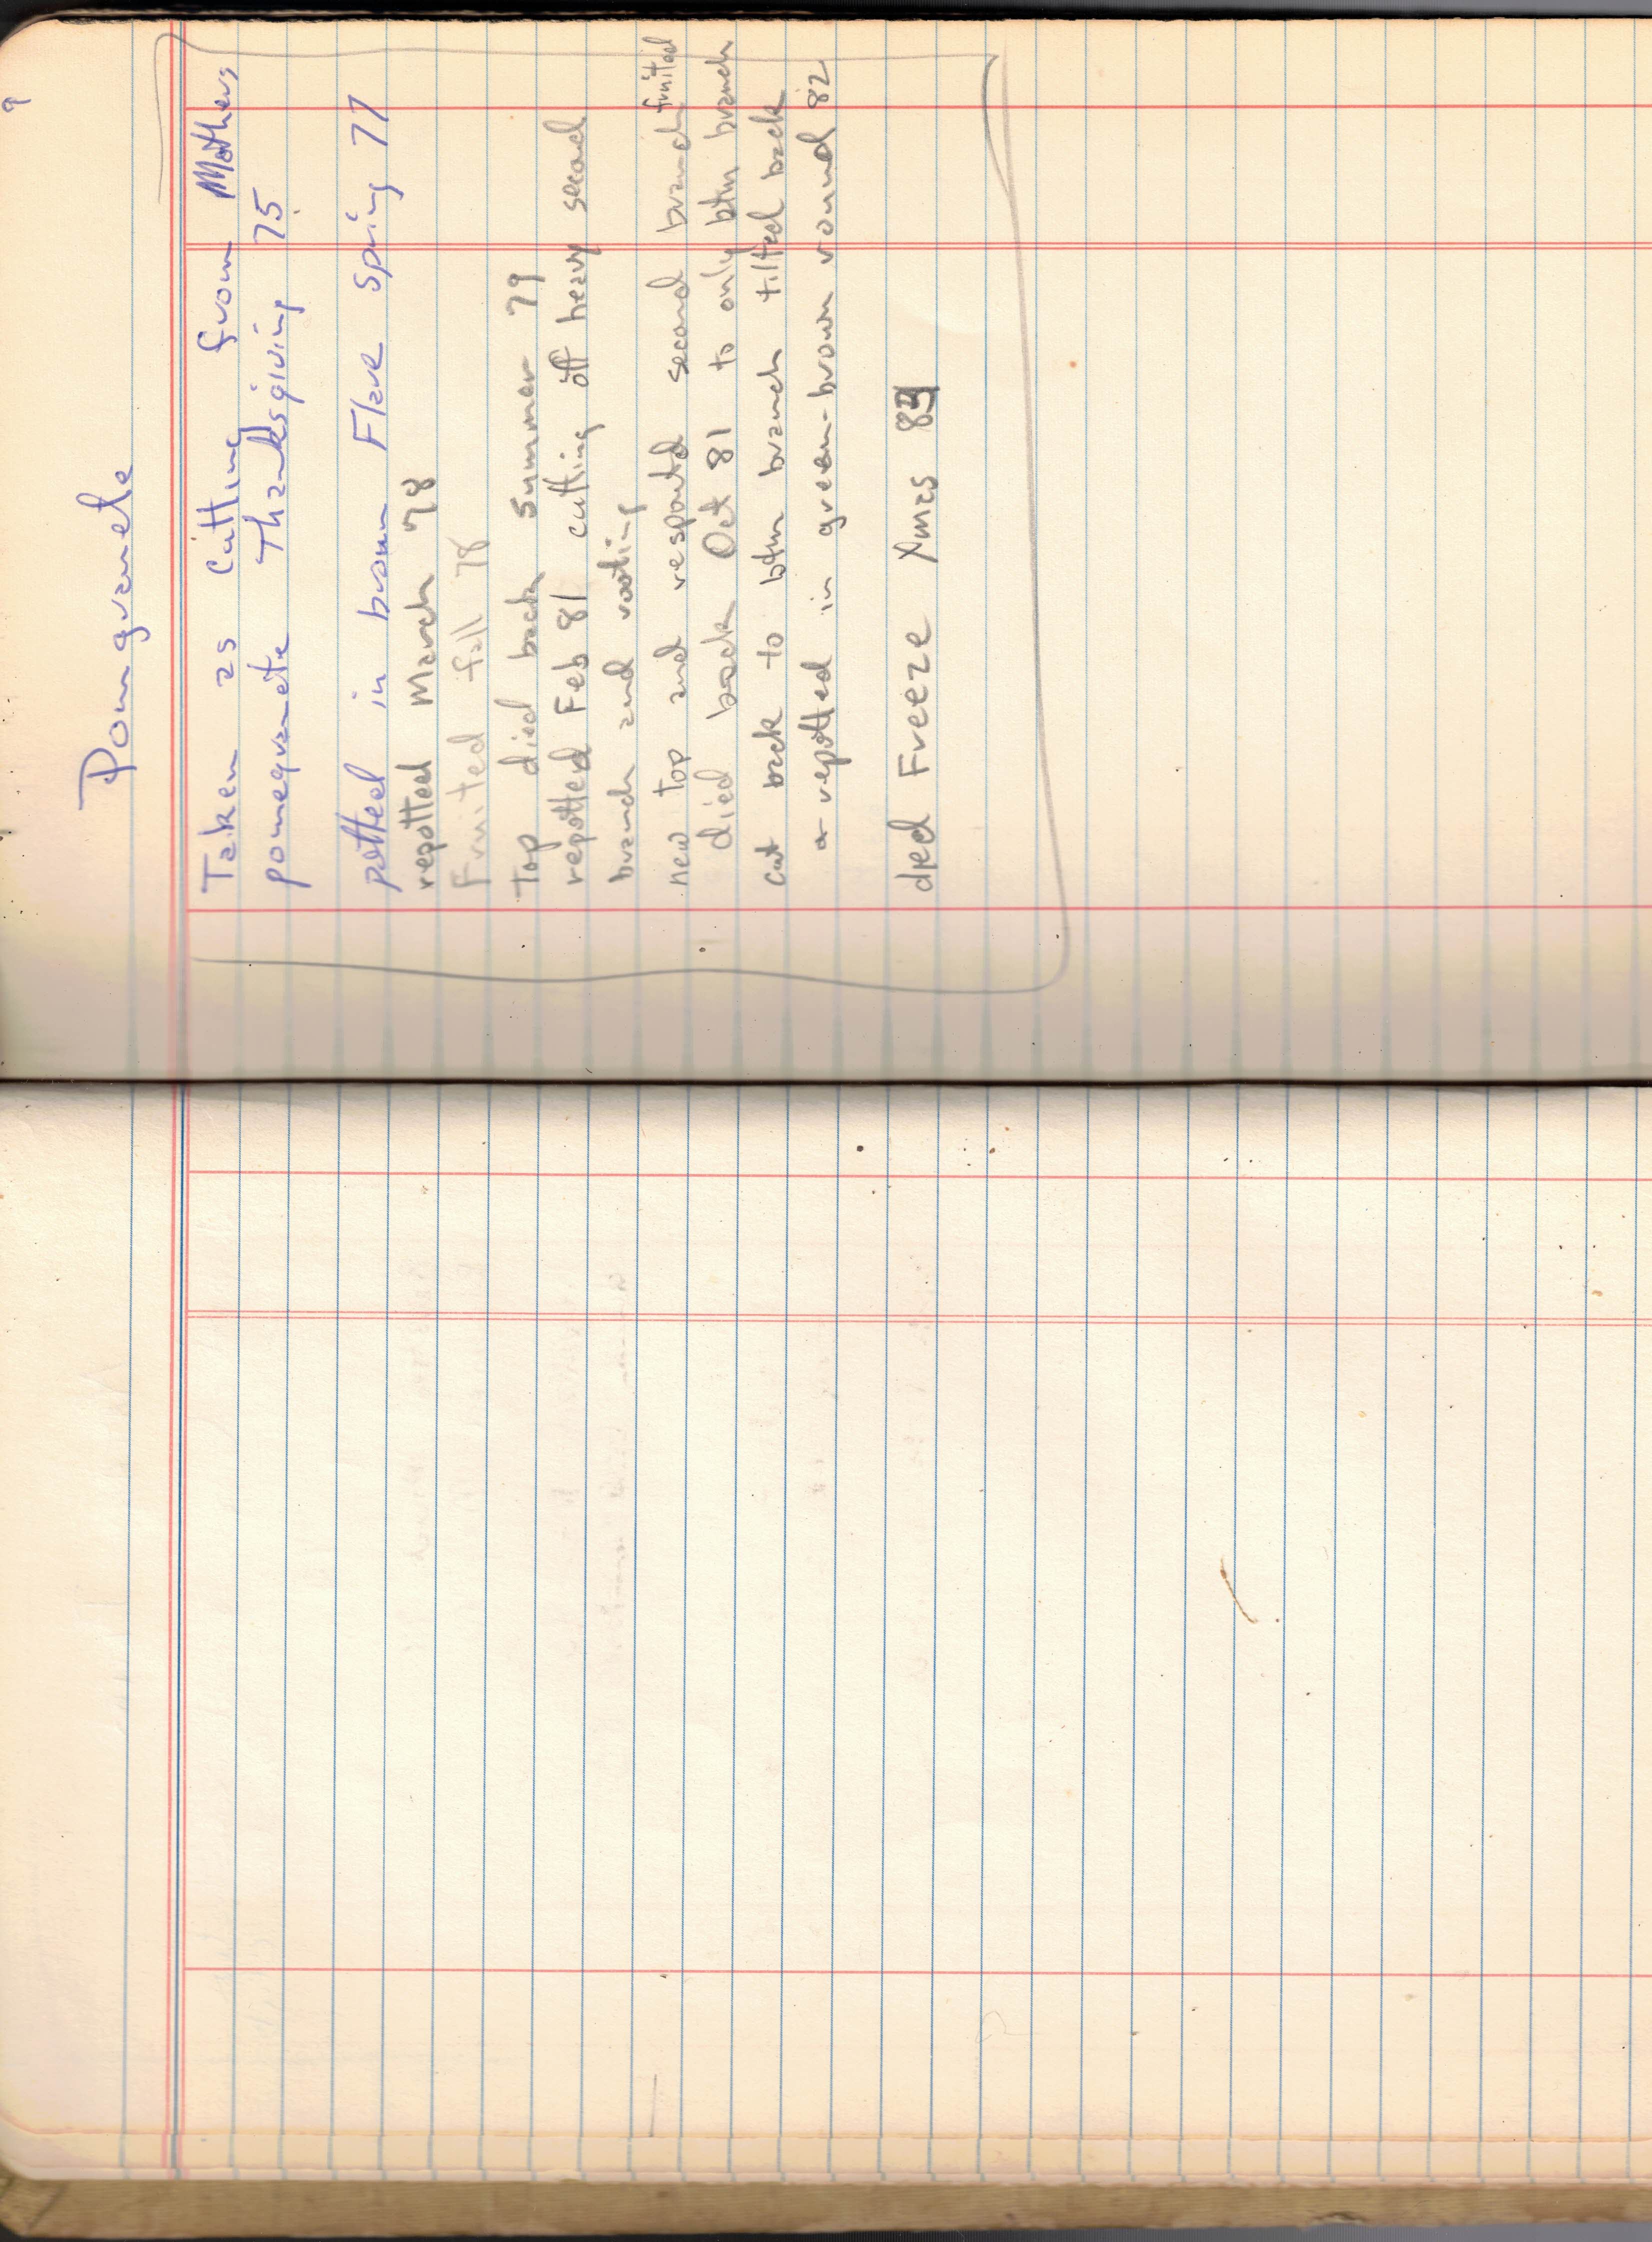 9
Pomgranete
Taken as Cutting from Mothers
pomegranete Thanksgiving 75
potted in brown Flare Spring 77
repotted March 78
Fruited fall 78
Top died back Summer 79
repotted Feb 81 cutting off heavy second
branch and rooting
new top and respoutd second branch fruited
died back Oct 81 to only btm branch
cut back to btm branch tilted back
& repotted in green-brown round 82
died Freeze Xmas